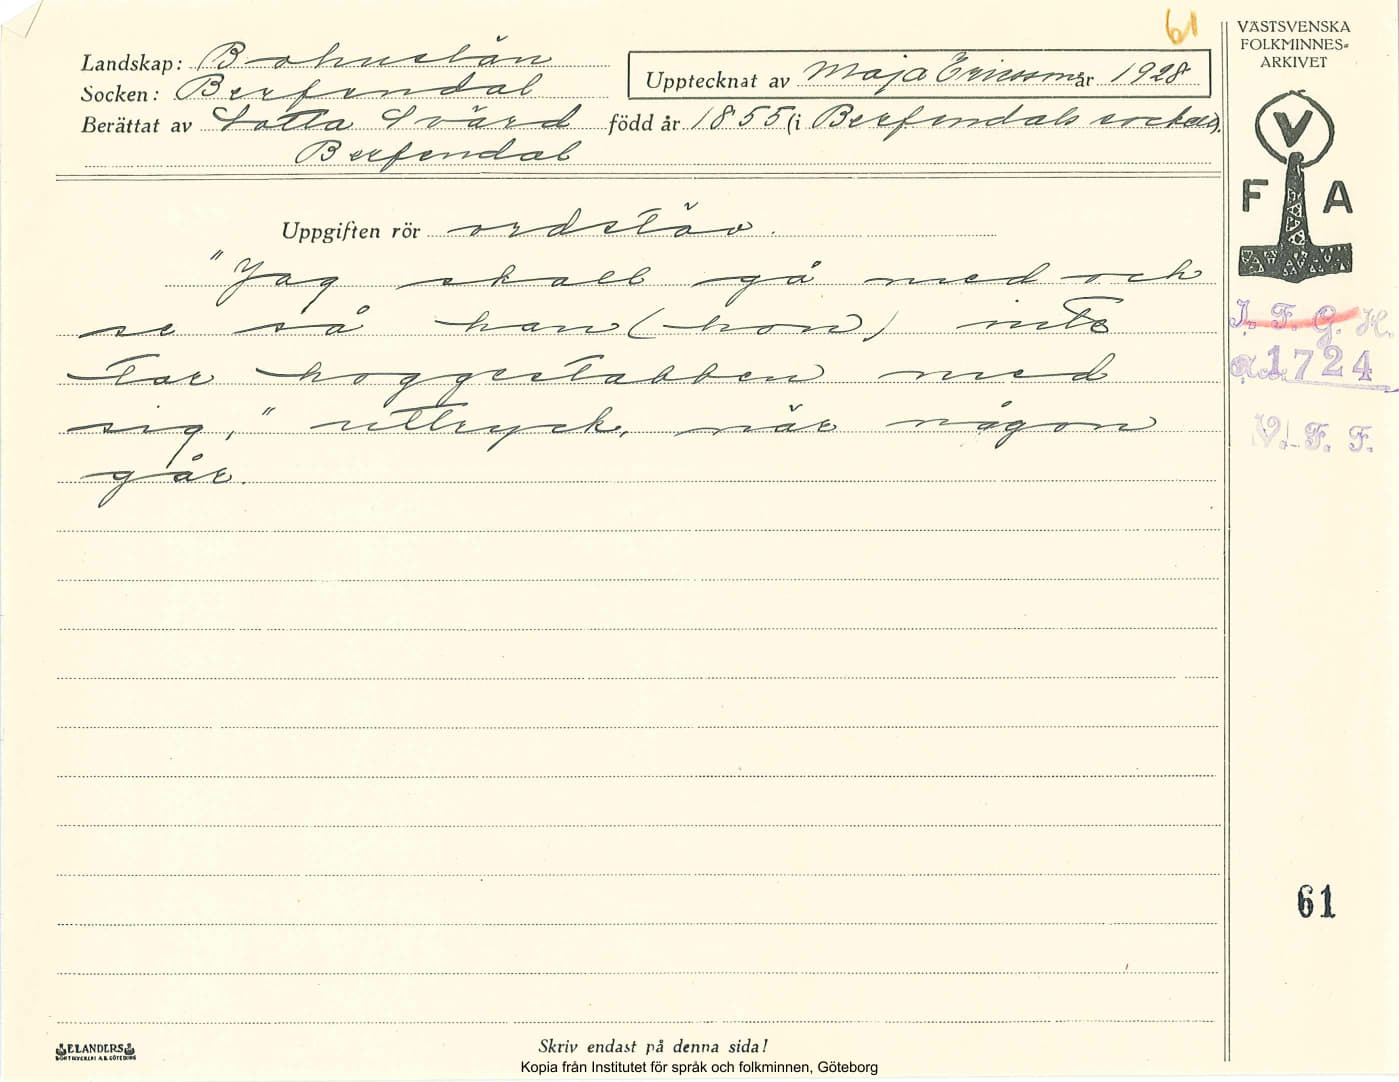 61
VÄSTSVENSKA
FOLKMINNES-
ARKIVET
Landskap: Bohuslän
Socken: Berfendal
Upptecknat av Maja Ericsson år 1928
Berättat av Lotta Svärd född år 1855 (i Berfendals socken).
Berfendal
V
F A
Uppgiften rör ordstäv.
"Jag skall gå med och
se så han (hon) inte
tar hoggestabben med
sig," uttryck, när någon
går.
I. F. G. H.
1724
V. F. F.
61
ELANDERS
Skriv endast på denna sida!
Kopia från Institutet för språk och folkminnen, Göteborg